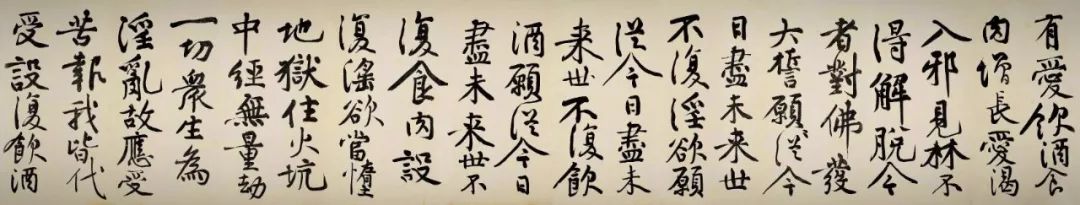 有愛飲酒食
肉增長愛渴
入邪見林不
得解脫今
者對佛發
大誓願從今
日盡未来世
不復淫欲願
從今日盡未
来世不復飲
酒願從今日
盡未来世不
復食肉設
復淫欲當墮
地獄住火坑
中經無量劫
一切衆生為
淫亂故應受
苦報我皆代
受設復飲酒